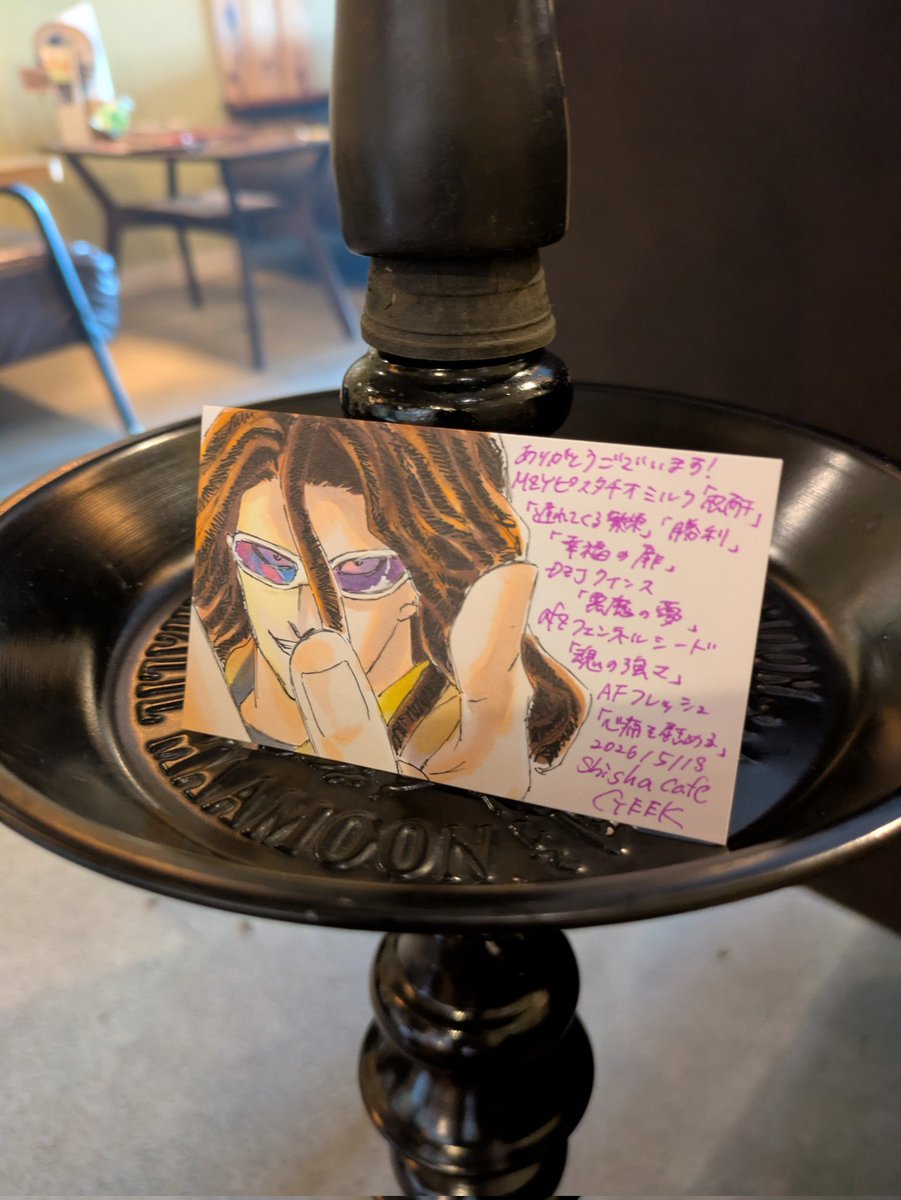 ありがとうございます!
MZYピスタチオミルク「忍耐」
「連れてくる繁栄」「勝利」
「幸福の扉」
DZJクインス
「悪魔の夢」
AFZフェンネルシード
「魂の強さ」
AFフレッシュ
「心痛を慰める」
2026/5/18
Shisha cafe
GEEK
MAAMOON